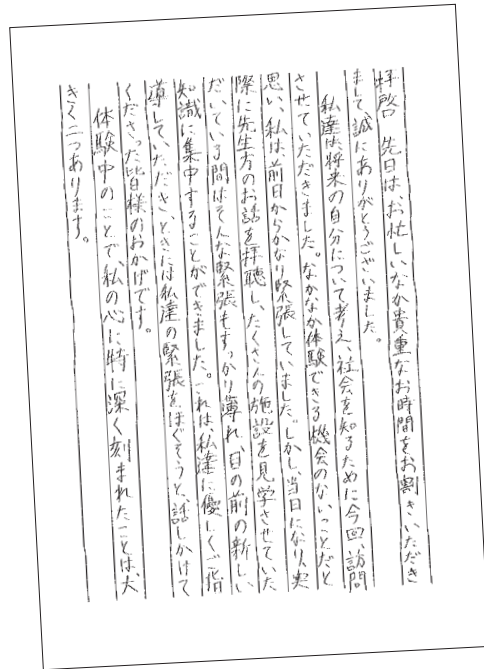 拝啓 先日は、お忙しいなか貴重なお時間をお割きいただき
まして、誠にありがとうございました。
私達は、将来の自分について考え、社会を知るために今回、訪問
させていただきました。なかなか体験できる機会のないことだと
思い、私は、前日からかなり緊張していました。しかし、当日になり、実
際に先生方のお話を拝聴し、たくさんの施設を見学させていた
だいている間はそんな緊張もすっかり薄れ、目の前の新しい
知識に集中することができました。これは、私達に優しくご指
導していただき、ときには私達の緊張をほぐそうと、話しかけて
くださった皆様のおかげです。
体験中のことで、私の心に特に深く刻まれたことは、大
きく二つあります。